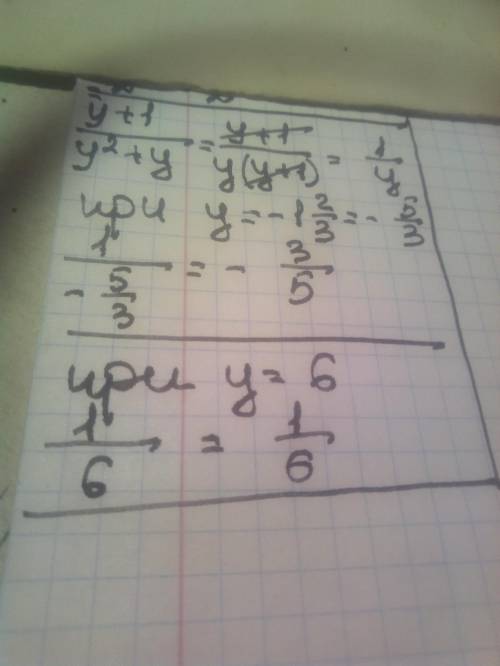 y+1/y²+y = y+1/y(y+1) = 1/y
при y = -1 2/3 = - 5/3
1/- 5/3 = - 3/5
при y = 6
1/6 = 1/6